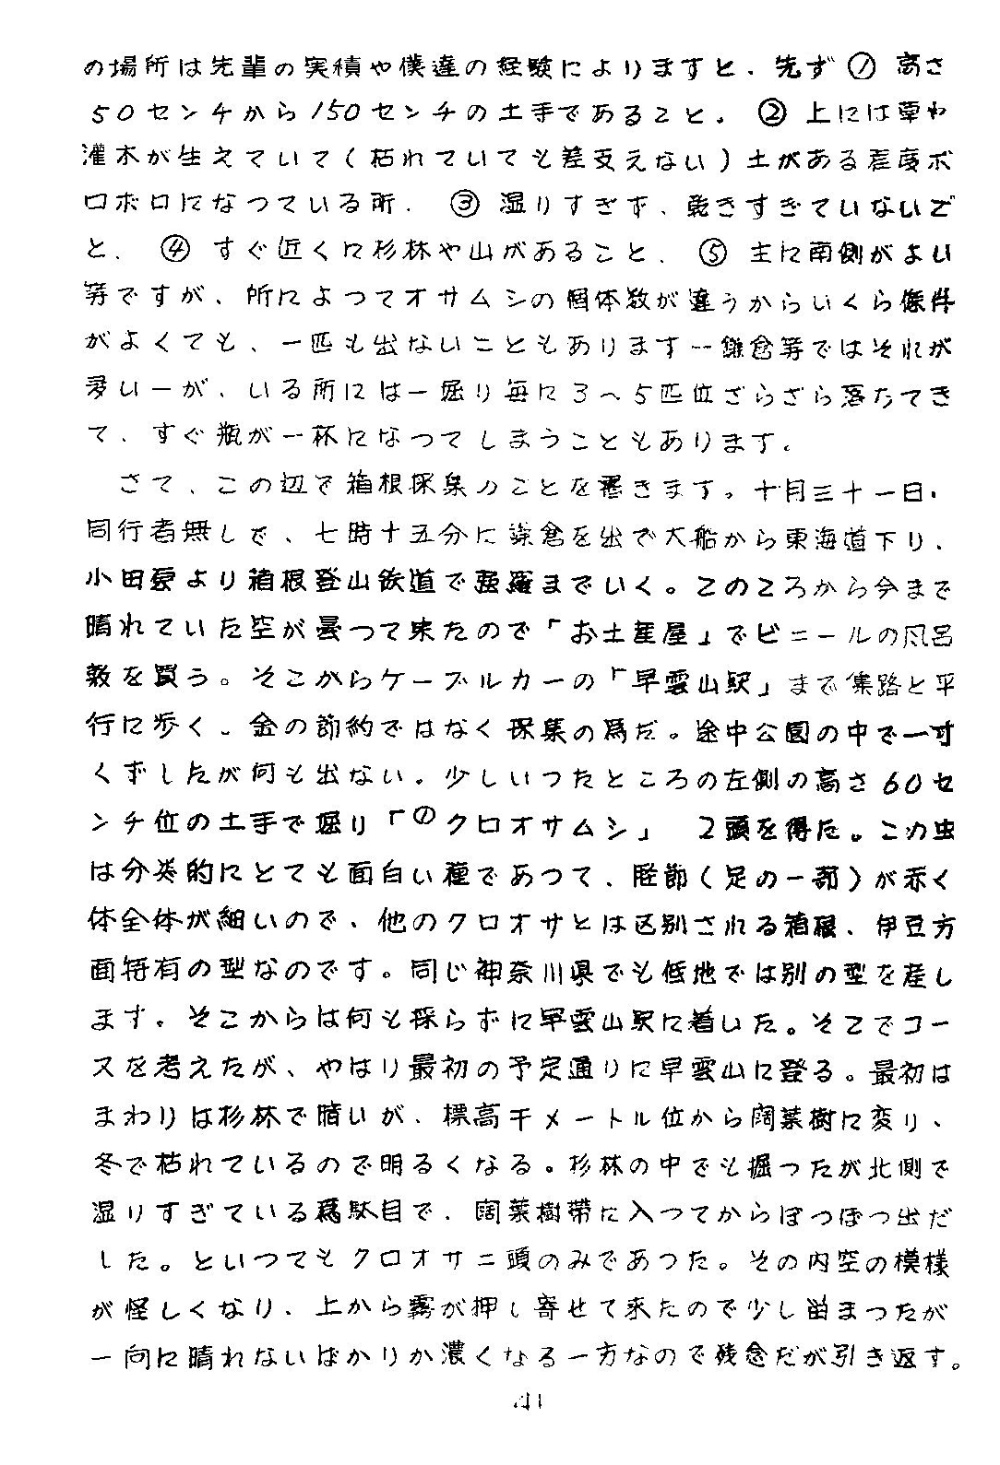 の場所は先輩の実積や僕達の経験によりますと、先ず ① 高さ
50センチから150センチの土手であること。 ② 上には草や
灌木が生えていて(枯れていても差支えない)土がある程度ボ
ロボロになつている所. ③ 湿りすぎず、乾きすぎていないこ
と、 ④ すぐ近くに杉林や山があること、 ⑤ 主に南側がよい
等ですが、所によつてオサムシの個体数が違うからいくら条件
がよくても、一匹も出ないこともあります--鎌倉等ではそれが
多いーが、いる所には一掘り毎に3〜5匹位ざらざら落ちてき
て、すぐ瓶が一杯になつてしまうこともあります。
さて、この辺で箱根採集のことを書きます。十月三十一日、
同行者無しで、七時十五分に鎌倉を出で大船から東海道下り、
小田原より箱根登山鉄道で強羅までいく。このころから今まで
晴れていた空が曇つて来たので「お土産屋」でビニールの風呂
敷を買う。そこからケーブルカーの「早雲山駅」まで集路と平
行に歩く。金の節約ではなく採集の為だ。途中公園の中で一寸
くずしたが何も出ない。少しいつたところの左側の高さ60セ
ンチ位の土手で掘り「①クロオサムシ」 2頭を得た。この虫
は分類的にとても面白い種であつて、脛節(足の一部)が赤く
体全体が細いので、他のクロオサとは区別される箱根、伊豆方
面特有の型なのです。同じ神奈川県でも低地では別の型を産し
ます。そこからは何も採らずに早雲山駅に着いた。そこでコー
スを考えたが、やはり最初の予定通りに早雲山に登る。最初は
まわりは杉林で暗いが、標高千メートル位から闊葉樹に変り、
冬で枯れているので明るくなる。杉林の中でも掘つたが北側で
湿りすぎている為駄目で、闊葉樹帯に入つてからぽつぽつ出だ
した。といつてもクロオサ二頭のみであつた。その内空の模様
が怪しくなり、上から霧が押し寄せて来たので少し留まつたが
一向に晴れないばかりか濃くなる一方なので残念だが引き返す。
41